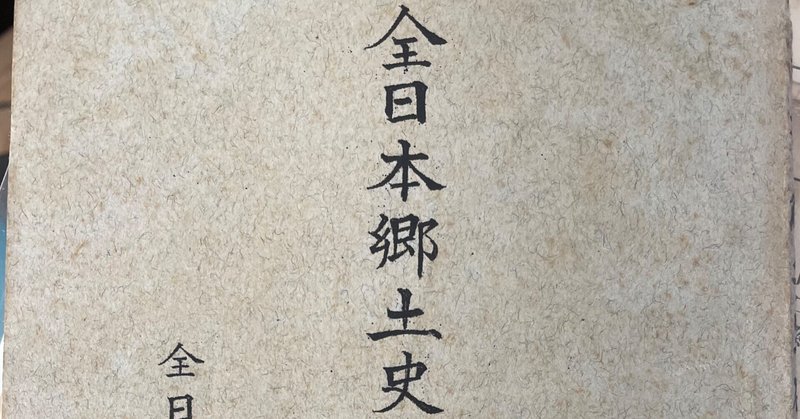 全日本郷土史
全日